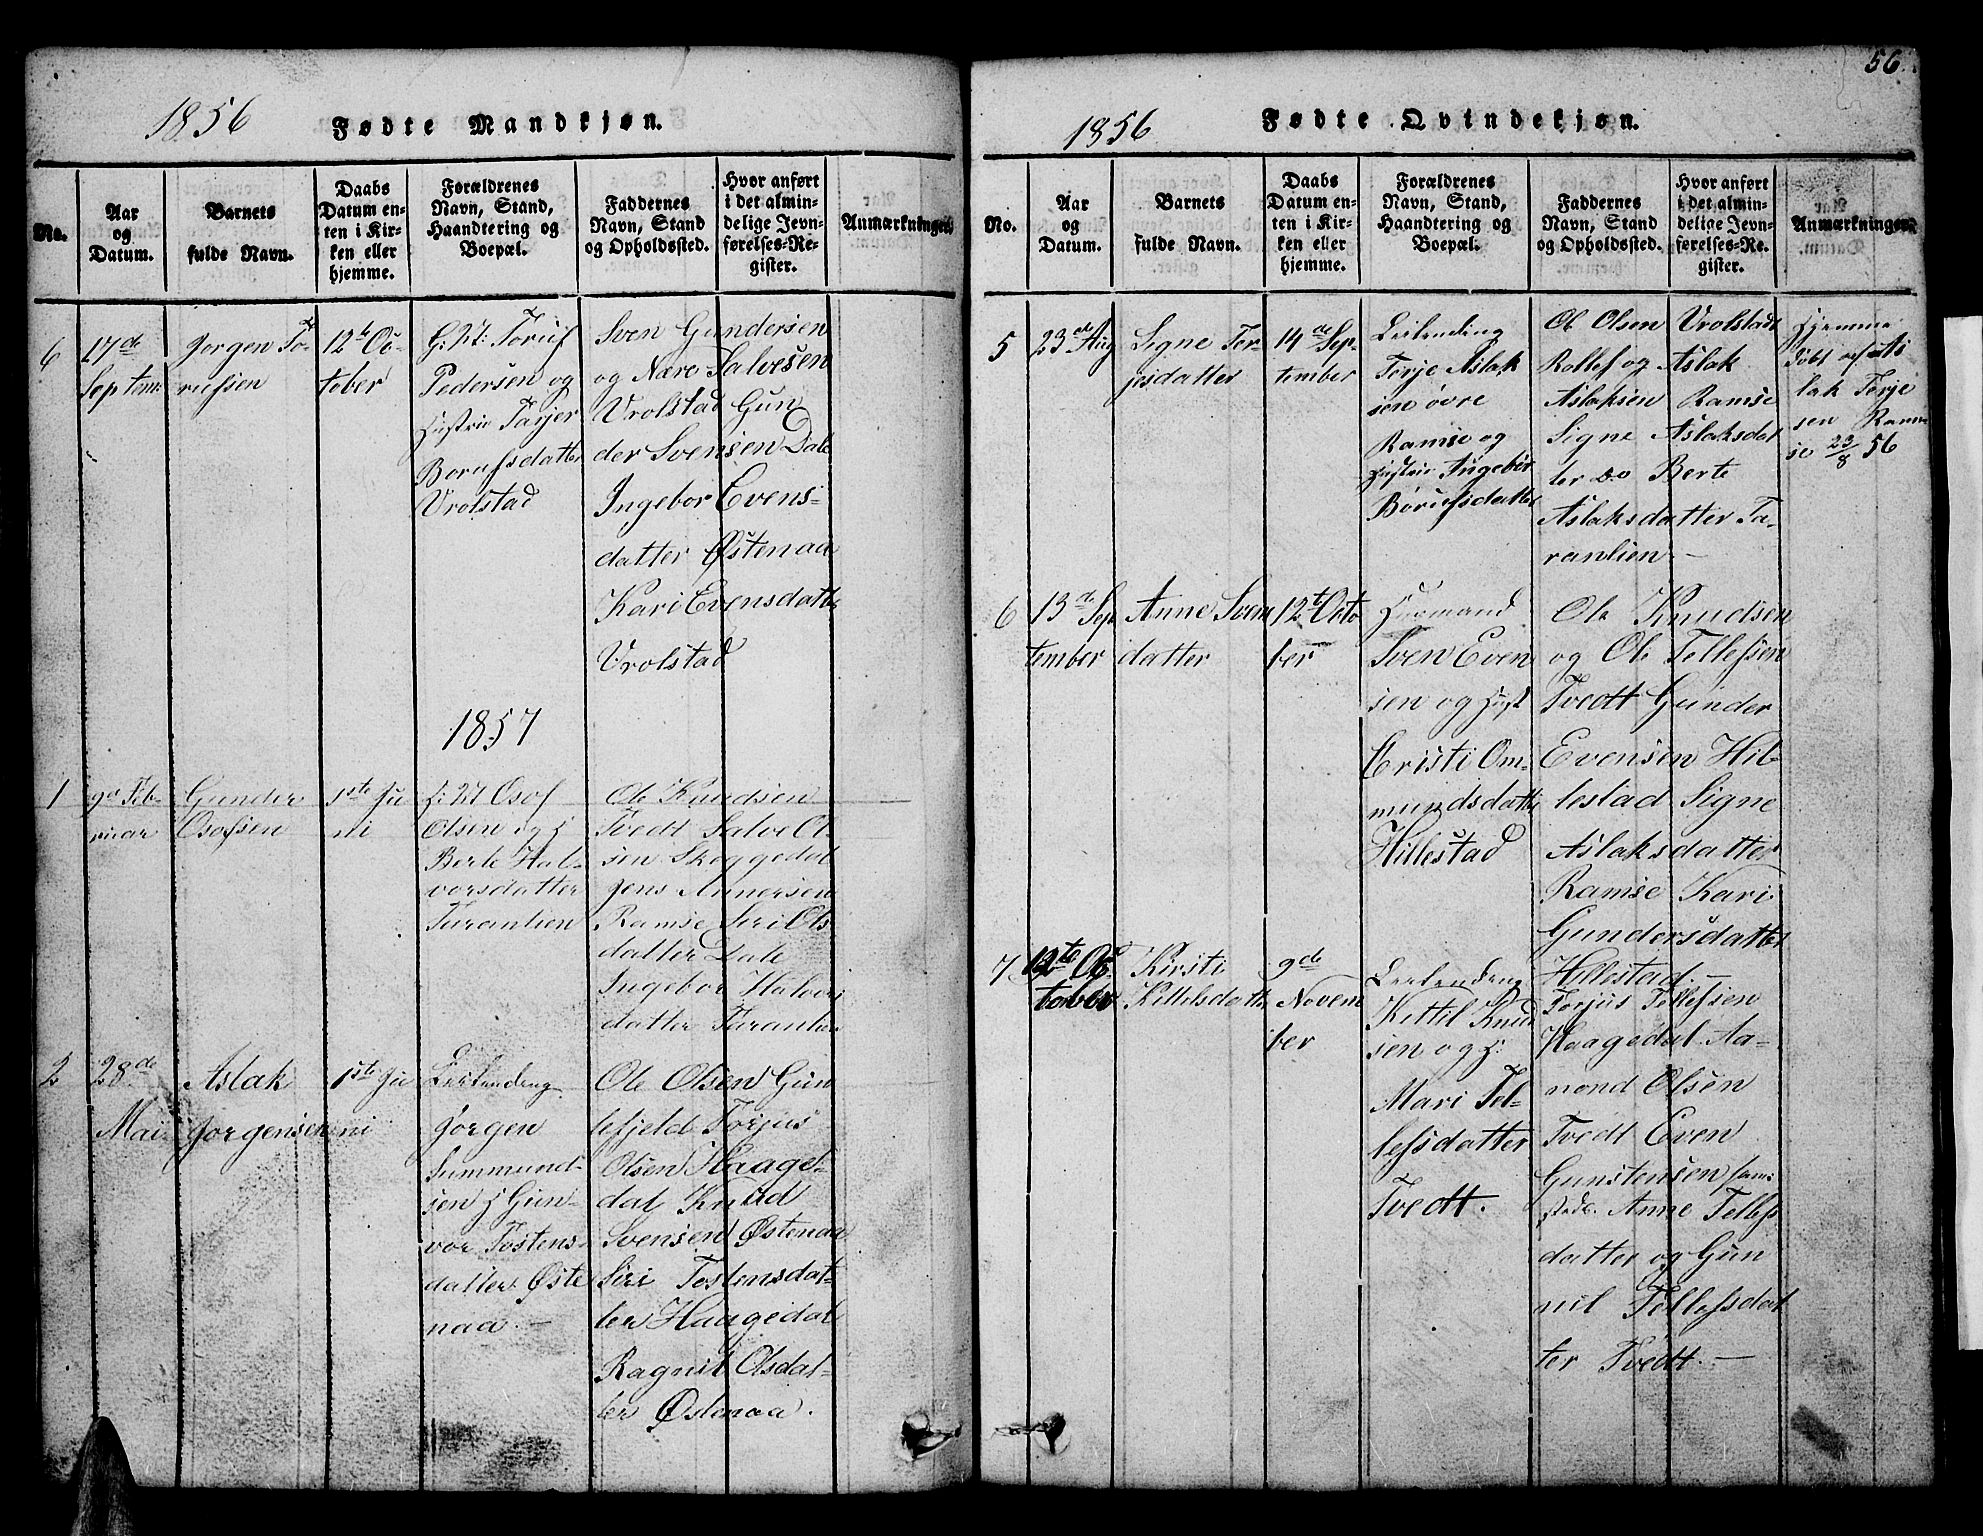 56.
1856 Fødte Mandkjøn.
No.
Aar
og
Datum.
Barnets
fulde Navn.
Daabs
Datum en-
ten i Kir-
ken eller
hjemme.
Forældrenes
Navn, Stand,
Haandtering og
Boepæl.
Faddernes
Navn, Stand
og Opholdssted.
Hvor anført
i det almin-
delige Jevn-
førelses-Re-
gister.
Anmærkninger.
6
17de
Septem
Jorgen To-
riessen
12te Oc-
tober
Pedersen og
Hustrie Tarjer
Borufsdatter
Vrolstad
Sven Gundersen
og Nære Salvesen
Vrolstad Gun
der Svensen Dale
Ingebor Evens-
datter Østenaa
Kari Evensdatter
Vrolstad
1857
1
9de Feb-
ruar
Gunder
Osofsen
1ste Ju
ni
Osof
Olsen og H
Berte Hal-
vorsdatter
Taranlien
Ole Knudsen
Tvedt Salve Ol
sen Skeggedal
Jens Annersen
Ramse Siri Ols
datter Dale
Ingebor Halvors
datter Taranlien
2
28de
Mai
Aslak
Jorgensen
1ste Ju
ni
Leilending
Jorgen
Summund-
sen H Gun-
vor Tostens-
datter Øste
naa. -
Ole Olsen Gun
lefjeld Torjus
Olsen Haage-
dal Knud
Svensen Østenaa
Siri Tostensdat-
ter Haagedal
Ragnil Olsdat-
ter Østenaa.
1856 Fødte Qvindekjøn.
No.
Aar
og
Datum.
Barnets
fulde Navn.
Daabs
Datum en-
ten i Kir-
ken eller
hjemme.
Forældrenes
Navn, Stand,
Haandtering og
Boepæl.
Faddernes
Navn, Stand
og Opholdssted.
Hvor anført
i det almin-
delige Jevn-
førelses-Re-
gister.
Anmærkninger.
5
23de Aug
Signe Ter-
jesdatter
14de Sep-
tember
Leilending
Terje Aslak
sen øvre
Ramse og
Hustrie Angeber
Boriesdatter
Ole Olsen Vrolstad
Rollef og Aslak
Aslaksen Ramse
Signe Aslaksdat
ter do Berte
Aslaksdatter Ta-
ranlien -
Hjemme
døbt af As
lak Terje
sen Ram-
se 23/8 56
6
13de Sep
tember
Anne Sven
datter
12te Octo
ber
Huusmand
Sven Even
sen og Hust
Cristi Om-
mundsdatter
Hillestad
Ole Knudsen
og Ole Tellefsen
Tvedt Gunder
Evensen Hil-
lestad Signe
Aslaksdatter
Ramse Kari
Gundersdatter
Hillestad. -
7
12te Oc
tober
Kirsti
Kittelsdatter
9de
Novem
ber
Leilending
Kittil Knud
sen og H:
Mari Tel-
lefsdatter
Tvedt.
Torjus Tellefsen
Haagedal Aa-
nond Olsen
Tvedt Even
Gunstensen
Anne Tellefs
datter og Gun
nil Tellefsdat
ter Tvedt. -